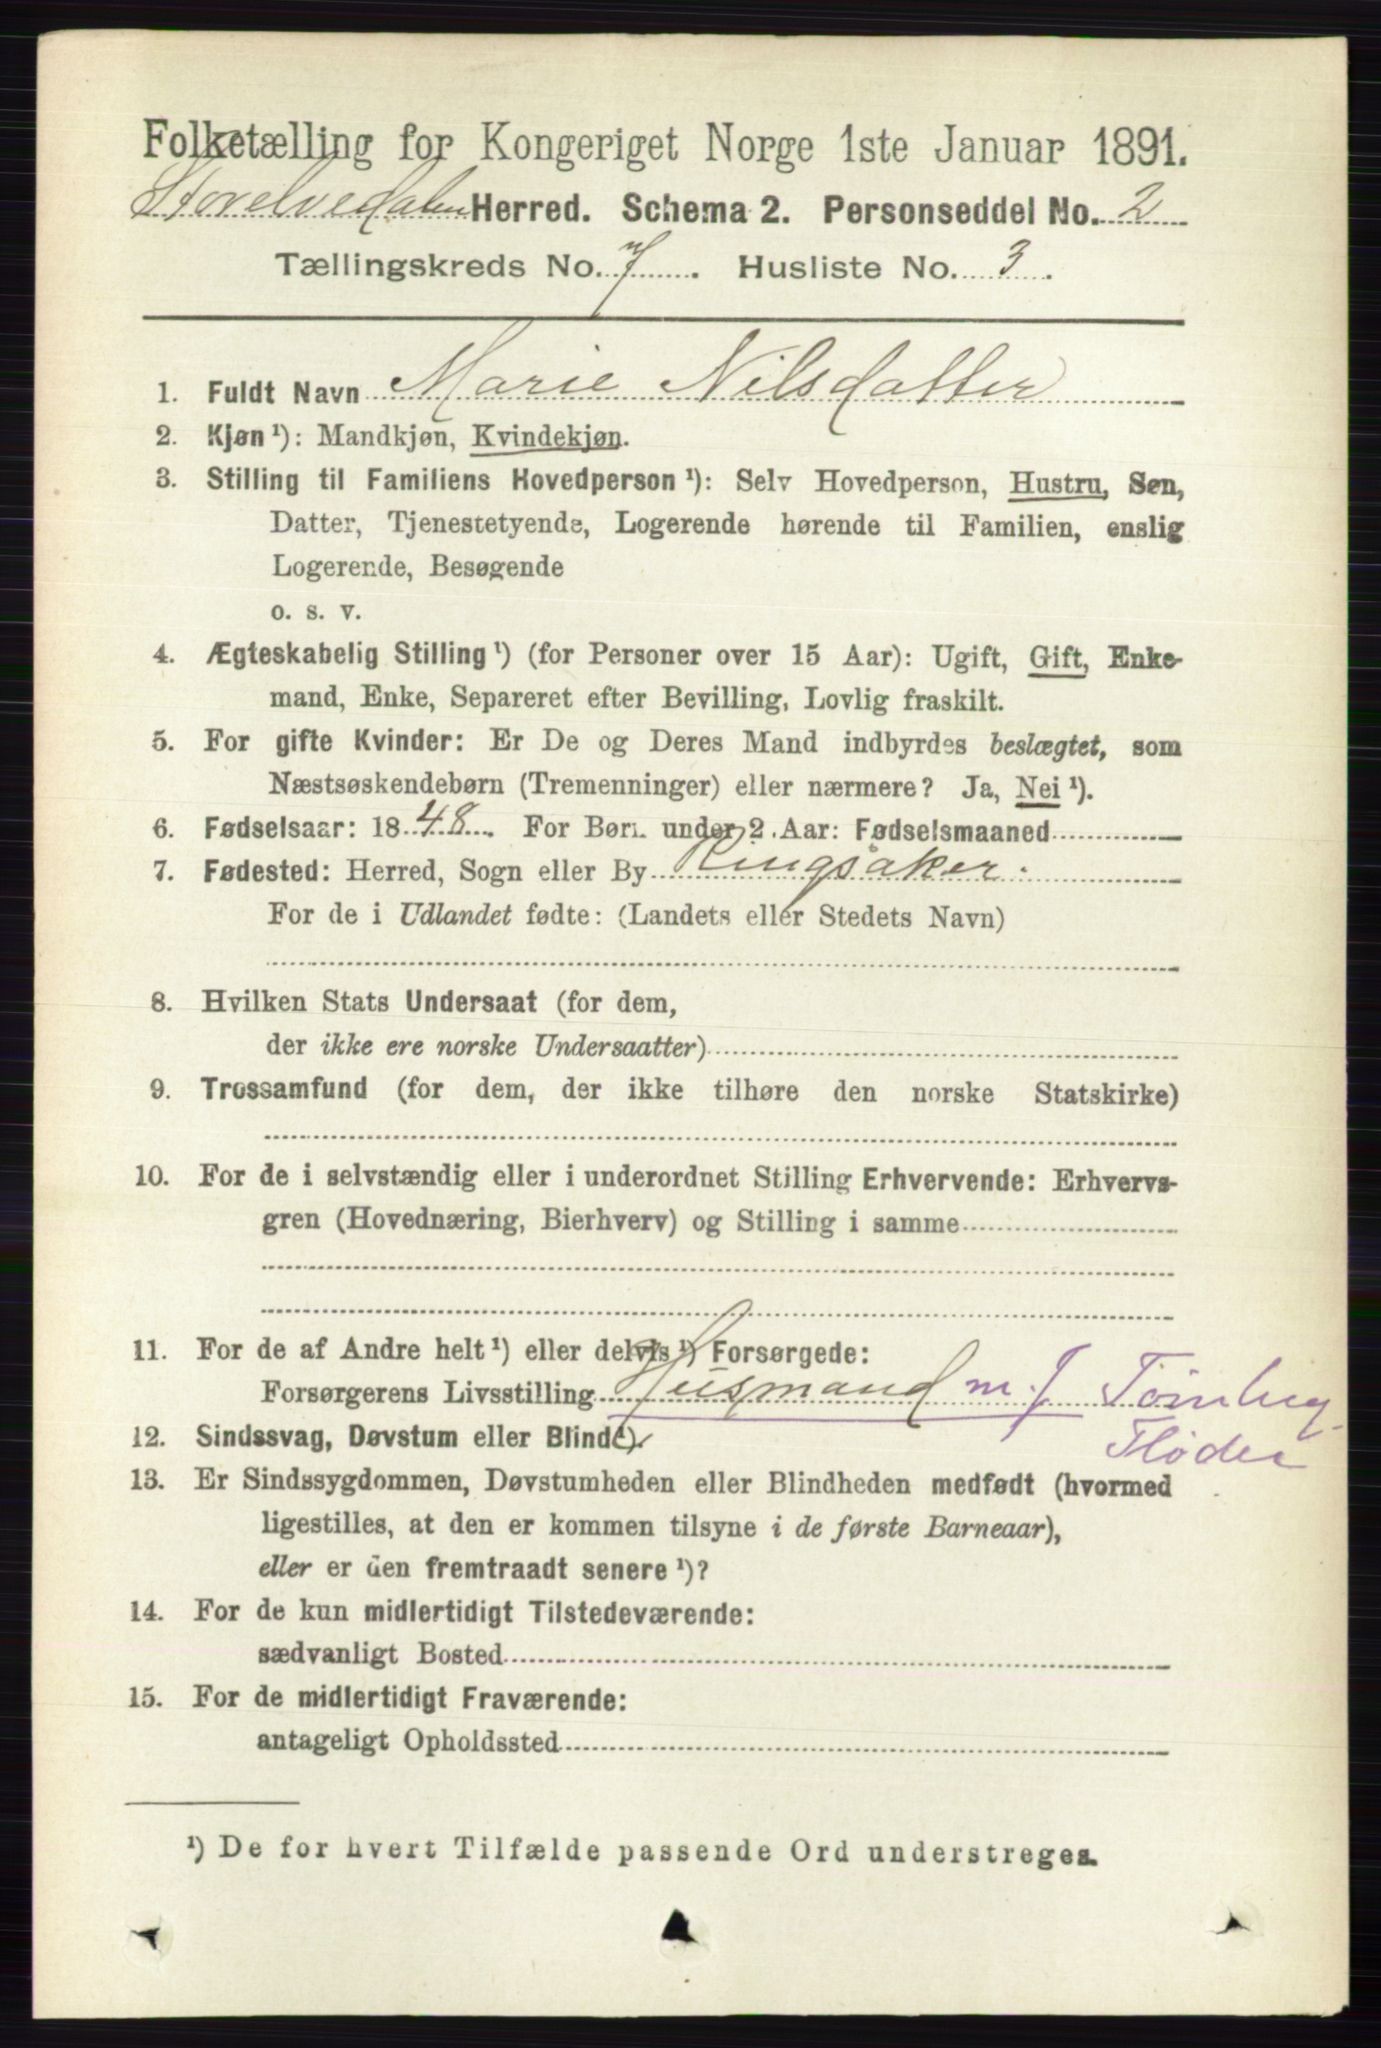 Folketælling for Kongeriget Norge 1ste Januar 1891.
Storelvedalen Herred. Schema 2. Personseddel No. 2
Tællingskreds No. 7. Husliste No. 3.
1. Fuldt Navn Marie Nilsdatter
2. Kjøn¹): Mandkjøn, Kvindekjøn.
3. Stilling til Familiens Hovedperson¹): Selv Hovedperson, Hustru, Søn,
Datter, Tjenestetyende, Logerende hørende til Familien, enslig
Logerende, Besøgende
o. s. v.
4. Ægteskabelig Stilling¹) (for Personer over 15 Aar): Ugift, Gift, Enke-
mand, Enke, Separeret efter Bevilling, Lovlig fraskilt.
5. For gifte Kvinder: Er De og Deres Mand indbyrdes beslægtet, som
Næstsøskendebørn (Tremenninger) eller nærmere? Ja, Nei¹).
6. Fødselsaar: 1848. For Børn under 2 Aar: Fødselsmaaned
7. Fødested: Herred, Sogn eller By Ringsaker.
For de i Udlandet fødte: (Landets eller Stedets Navn)
8. Hvilken Stats Undersaat (for dem,
der ikke ere norske Undersaatter)
9. Trossamfund (for dem, der ikke tilhøre den norske Statskirke)
10. For de i selvstændig eller i underordnet Stilling Erhvervende: Erhvervs-
gren (Hovednæring, Bierhverv) og Stilling i samme
11. For de af Andre helt¹) eller delvis¹) Forsørgede:
Forsørgerens Livsstilling Husmand m. J
12. Sindssvag, Døvstum eller Blind¹). Fløder
13. Er Sindssygdommen, Døvstumheden eller Blindheden medfødt (hvormed
ligestilles, at den er kommen tilsyne i de første Barneaar),
eller er den fremtraadt senere¹)?
14. For de kun midlertidigt Tilstedeværende:
sædvanligt Bosted
15. For de midlertidigt Fraværende:
antageligt Opholdssted
¹) De for hvert Tilfælde passende Ord understreges.